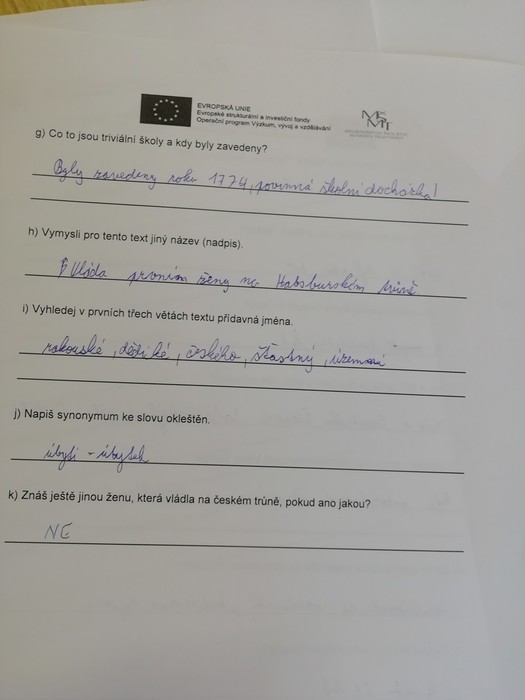 EVROPSKÁ UNIE
Evropské strukturální a investiční fondy
Operační program Výzkum, vývoj a vzdělávání
g) Co to jsou triviální školy a kdy byly zavedeny?
Byly zavedeny roku 1774, povinná školní docházka!
h) Vymysli pro tento text jiný název (nadpis).
Vláda první ženy na Habsburském trůně
i) Vyhledej v prvních třech větách textu přídavná jména.
rakouské, dědičké, českého, šťastný, územní
j) Napiš synonymum ke slovu okleštěn.
úbyli - úbytek
k) Znáš ještě jinou ženu, která vládla na českém trůně, pokud ano jakou?
NE